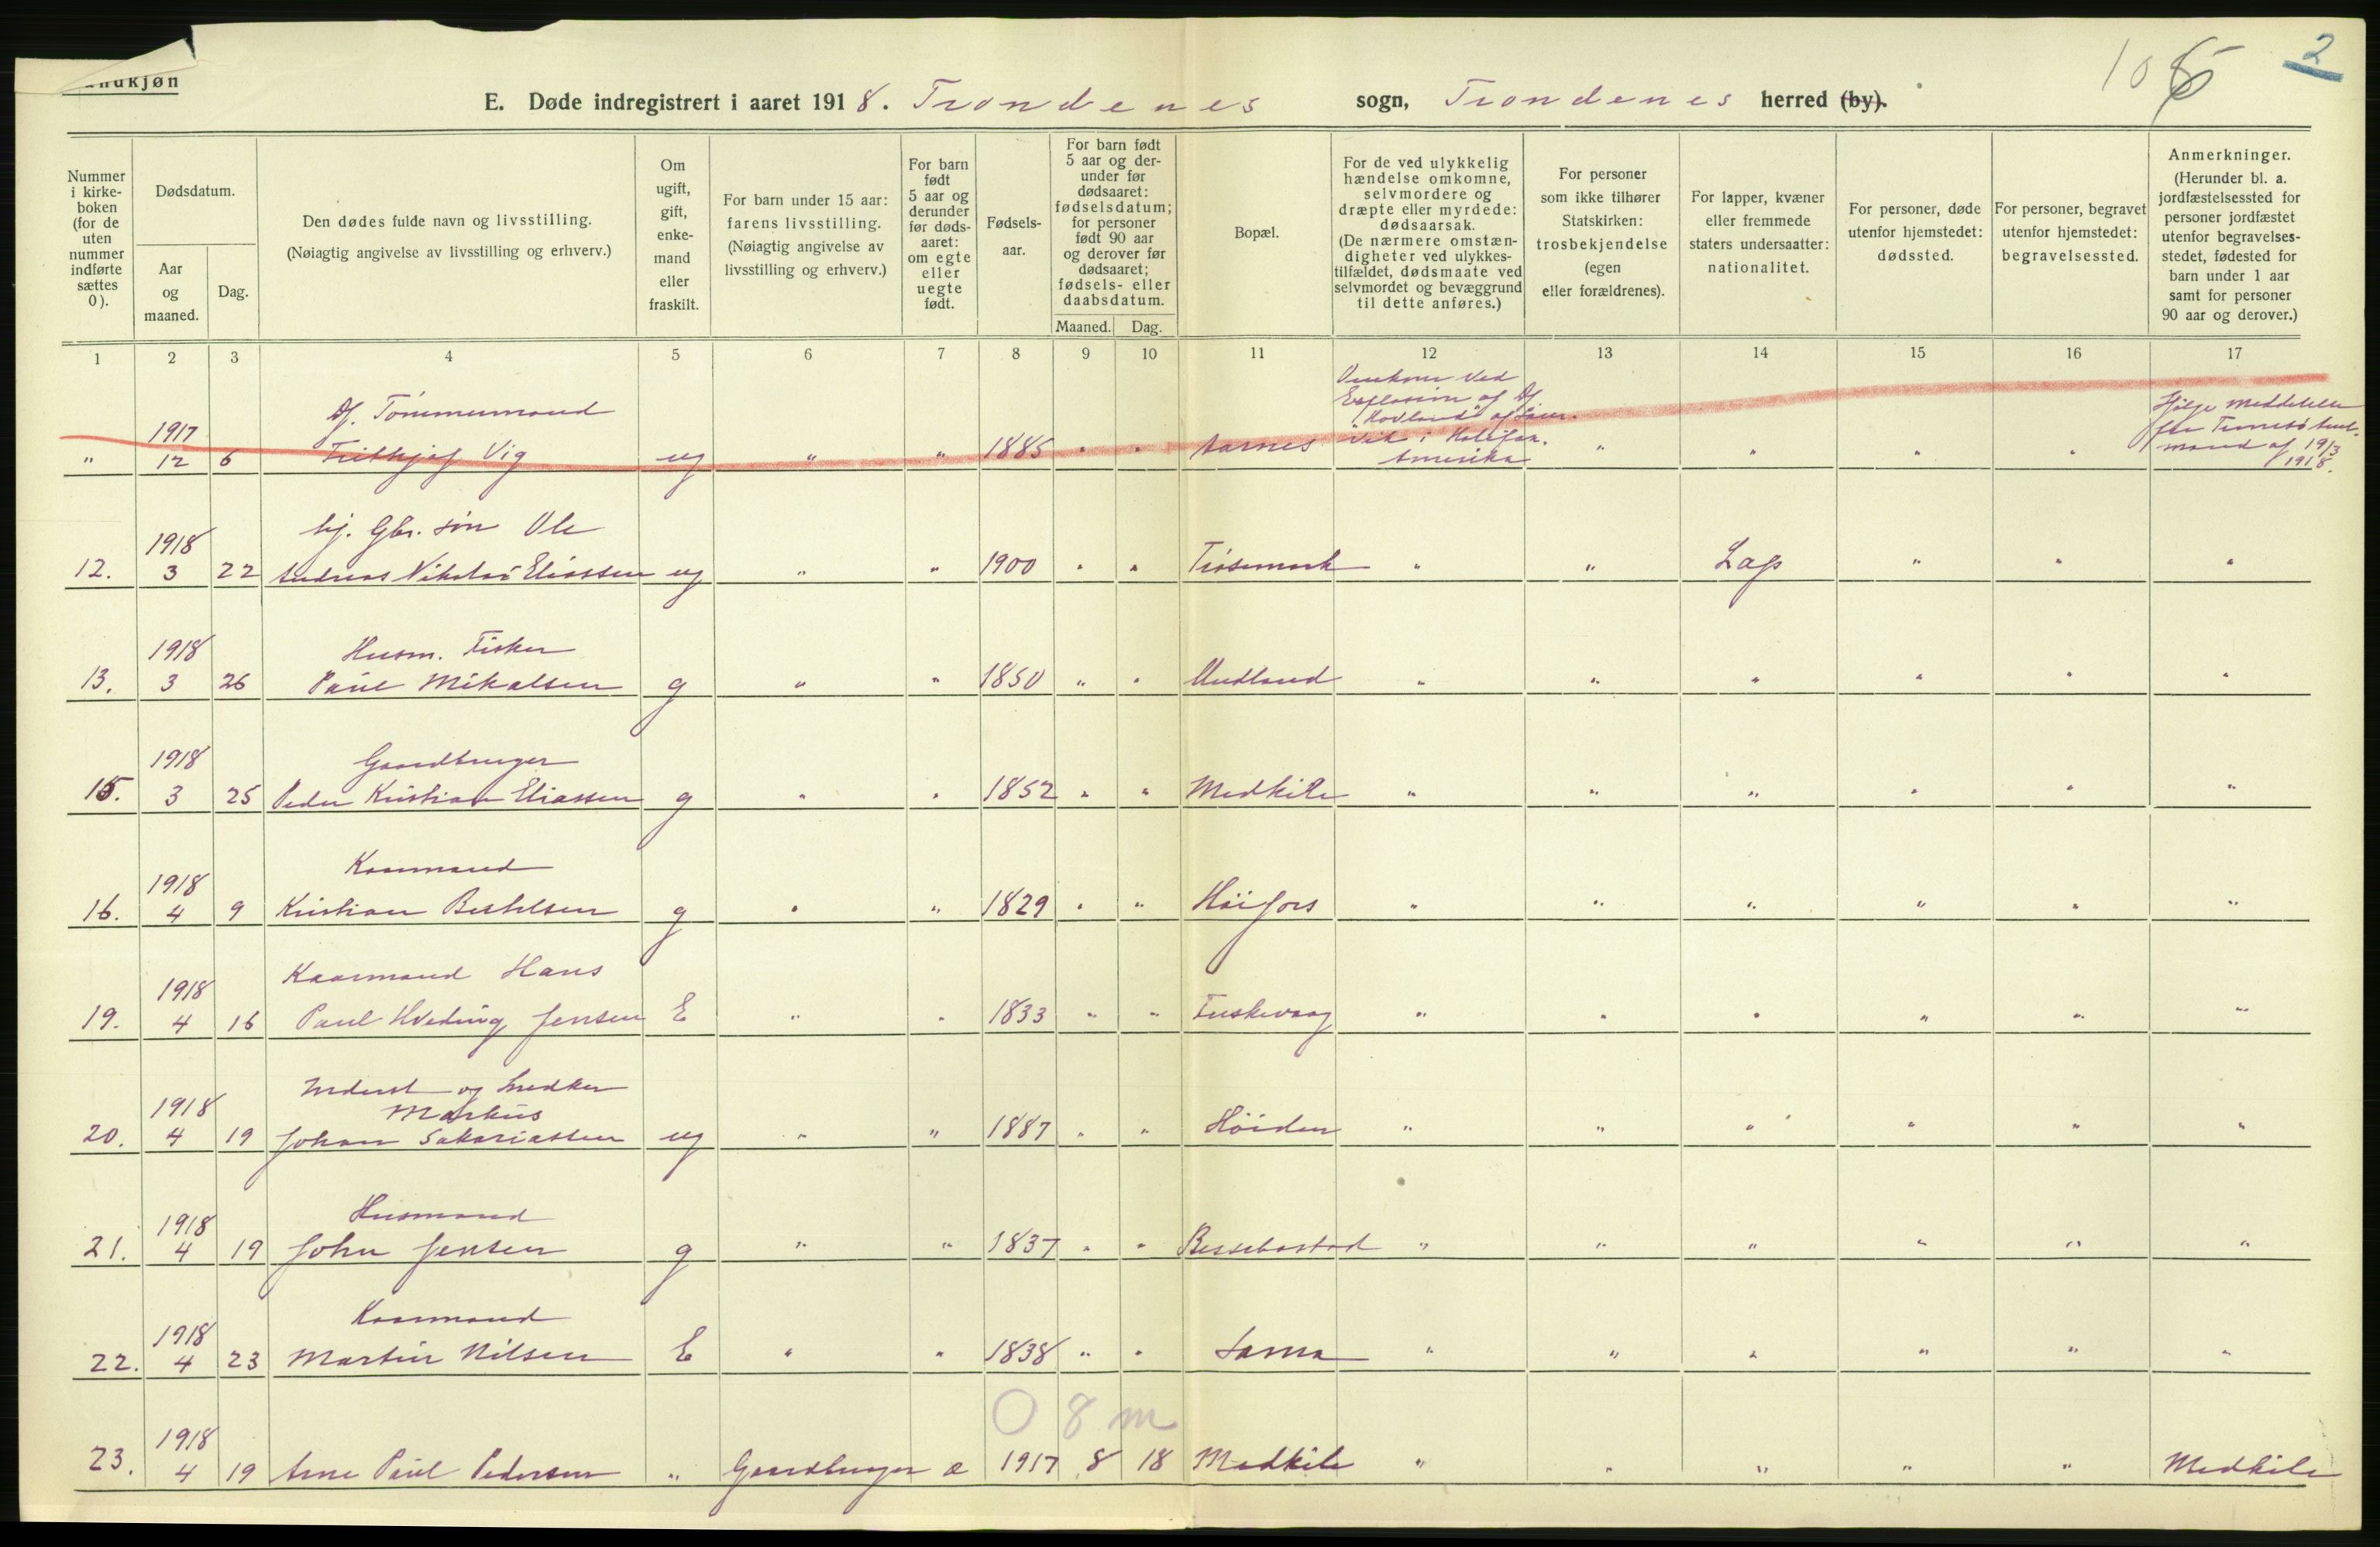 ndkjøn
E. Døde indregistrert i aaret 1918. Trondenes sogn, Trondenes herred (by).
106
2
Nummer i kirke-boken (for de uten nummer indførte sættes 0).
Dødsdatum.
Aar og maaned.
Dag.
Den dødes fulde navn og livsstilling.
(Nøiagtig angivelse av livsstilling og erhverv.)
Om ugift, gift, enke-mand eller fraskilt.
For barn under 15 aar: farens livsstilling.
(Nøiagtig angivelse av livsstilling og erhverv.)
For barn født 5 aar og derunder før døds-aaret: om egte eller uegte født.
Fødsels-aar.
For barn født 5 aar og der-under før dødsaaret: fødselsdatum; for personer født 90 aar og derover før dødsaaret; fødsels- eller daabsdatum.
Maaned. Dag.
Bopæl.
For de ved ulykkelig hændelse omkomne, selvmordere og dræpte eller myrdede: dødsaarsak.
(De nærmere omstæn-digheter ved ulykkes-tilfældet, dødsmaate ved selvmordet og bevæggrund til dette anføres.)
For personer som ikke tilhører Statskirken: trosbekjendelse (egen eller forældrenes).
For lapper, kvæner eller fremmede staters undersaatter: nationalitet.
For personer, døde utenfor hjemstedet: dødssted.
For personer, begravet utenfor hjemstedet: begravelsessted.
Anmerkninger.
(Herunder bl. a. jordfæstelsessted for personer jordfæstet utenfor begravelses-stedet, fødested for barn under 1 aar samt for personer 90 aar og derover.)
1 2 3 4 5 6 7 8 9 10 11 12 13 14 15 16 17
Tømmermand
1917
" 12 6 Frithjof Vig ug " " 1885 " " Aarnes
Omkom ved
Explosion af
"Hovland" af
vik i Halifax.
Amerika
" " " "
Ifølge meddelelse
fra Tromsø
mand af 19/3
1918.
hj. Gbr. søn Ole
1918
12. 3 22 Andreas Nikolai Eliassen ug " " 1900 " " Trøsemark " " Lap " " "
Husm. Fisker
1918
13. 3 26 Paul Mikalsen g " " 1850 " " Undland " " " " " "
Gaardbruger
1918
15. 3 25 Peder Kristian Eliassen g " " 1852 " " Medkile " " " " " "
Kaarmand
1918
16. 4 9 Kristian Berthelsen g " " 1829 " " Høifors " " " " " "
Kaarmand Hans
1918
19. 4 16 Paul Hveding Jensen E " " 1833 " " Fuskevaag " " " " " "
Inderst og Snedker
1918 Markus
20. 4 19 Johan Sakariassen ug " " 1887 " " Høiden " " " " " "
Husmand
1918
21. 4 19 John Jensen g " " 1837 " " Bessebostad " " " " " "
Kaarmand
1918
22. 4 23 Martin Nilsen E " " 1838 " " Sama " " " " " "
0 8 m
1918
23. 4 19 Arne Paul Pedersen " Gaardbruger a 1917 8 18 Medkile " " " " " Medkile